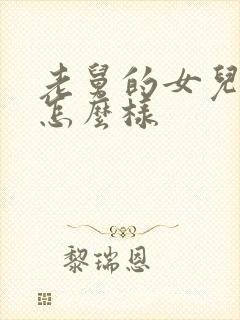 老舅的女兒
怎麼樣
黎瑞恩